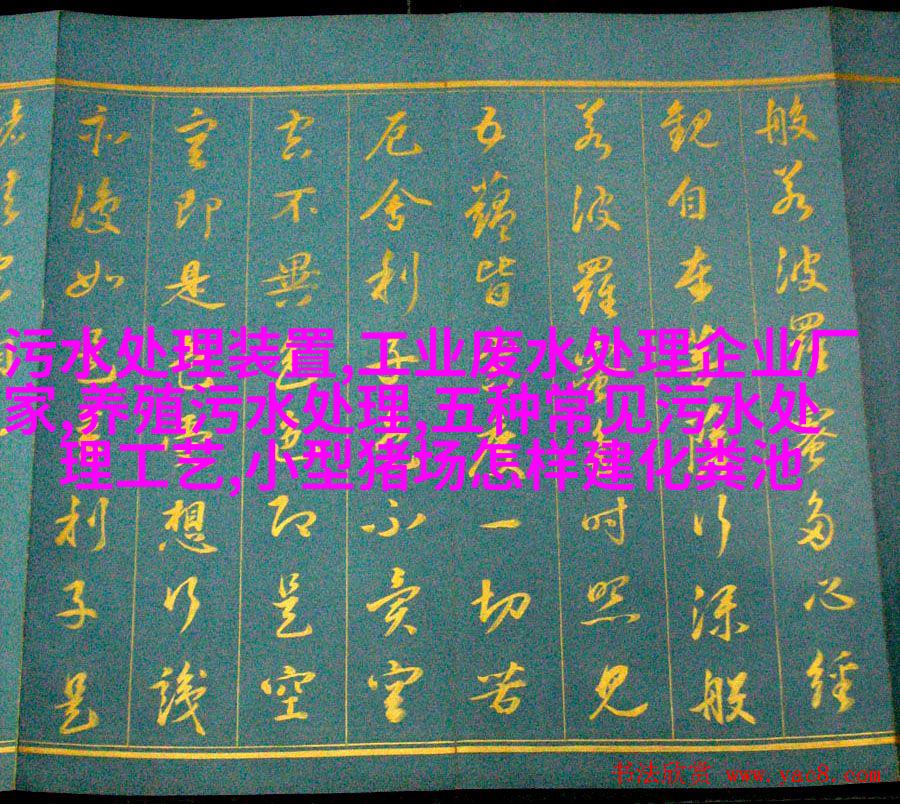 般若波羅蜜多心經
觀自在菩薩行深般
若波羅蜜多時照見
五蘊皆空度一切苦
厄舍利子色不異空
空不異色色即是空
空即是色受想行識
亦復如是舍利子是
污水处理装置,工业废水处理企业厂
家,养殖污水处理,五种常见污水处
理工艺,小型猪场怎样建化粪池
书法欣赏 www.yac8.com